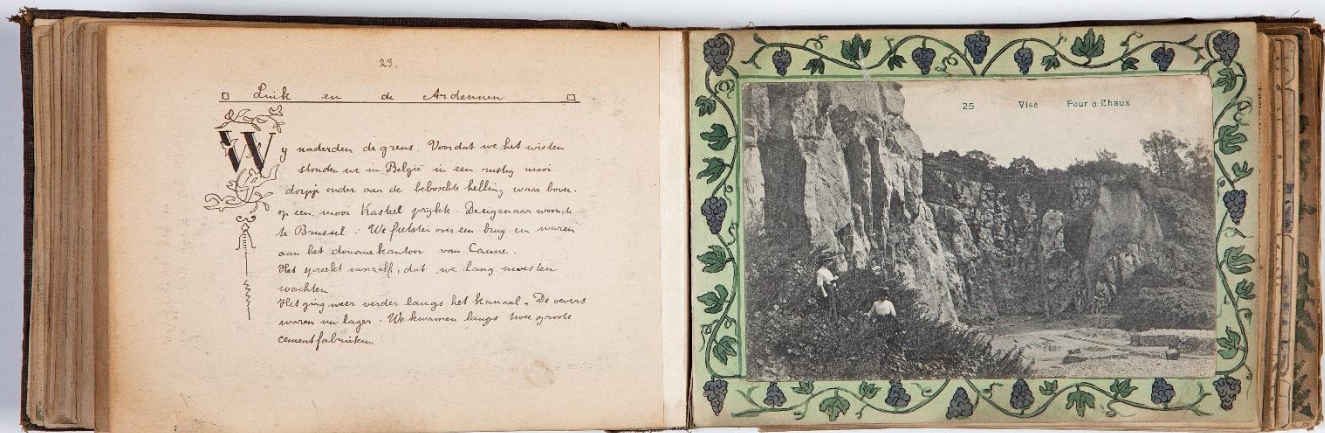 29.
Luik en de Ardennen
Wy naderden de grens. Voordat we het wisten
stonden we in België in een rustig mooi
dorpje onder aan de beboschte helling waar boven
op een mooi kasteel prijkte. De eigenaar woonde
te Brussel. We fietsten over een brug en waren
aan het douanekantoor van Canne.
Het spreekt vanzelf, dat we lang moesten
wachten
Het ging weer verder langs het kanaal. De oevers
waren nu lager. We kwamen langs twee groote
cementfabrieken
25 Visé Four à Chaux